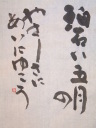 碧い五月の
やさしさに
あいにゆこう